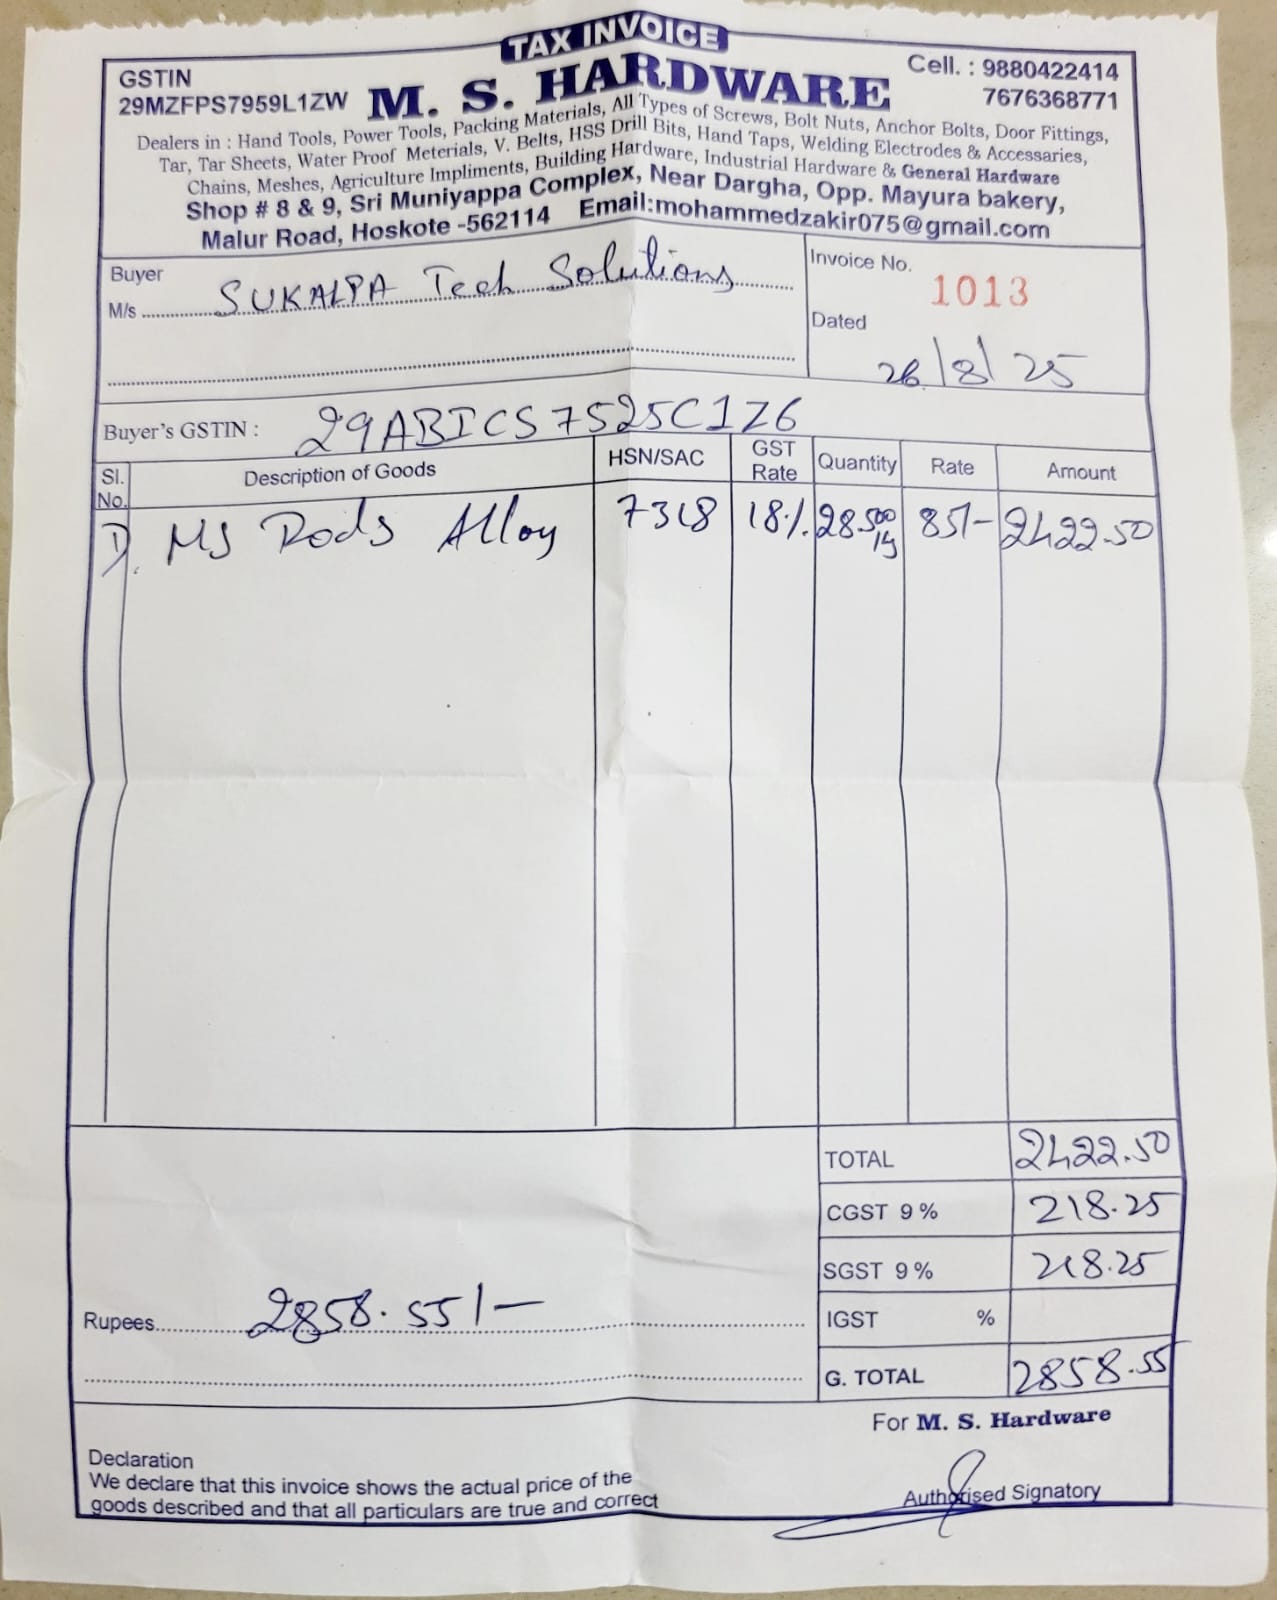 TAX INVOICE
GSTIN
29MZFPS7959L1ZW
M. S. HARDWARE
Cell. : 9880422414
7676368771
Dealers in : Hand Tools, Power Tools, Packing Materials, All Types of Screws, Bolt Nuts, Anchor Bolts, Door Fittings,
Tar, Tar Sheets, Water Proof Meterials, V. Belts, HSS Drill Bits, Hand Taps, Welding Electrodes & Accessaries,
Chains, Meshes, Agriculture Impliments, Building Hardware, Industrial Hardware & General Hardware
Shop # 8 & 9, Sri Muniyappa Complex, Near Dargha, Opp. Mayura bakery,
Malur Road, Hoskote -562114 Email:mohammedzakir075@gmail.com
Buyer
M/s SUKALPA Tech Solutions
Invoice No.
1013
Dated
26/8/25
Buyer's GSTIN : 29ABICS7525C1Z6
Sl. No. Description of Goods HSN/SAC GST Rate Quantity Rate Amount
1) MS Rods Alloy 7318 18% 28.500 85/- 2422.50
TOTAL 2422.50
CGST 9 % 218.25
SGST 9 % 218.25
Rupees 2858.55/-
IGST %
G. TOTAL 2858.55
For M. S. Hardware
Declaration
We declare that this invoice shows the actual price of the
goods described and that all particulars are true and correct
Authorised Signatory